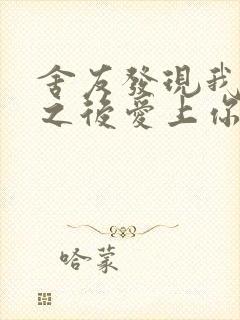 舍友發現我
之後愛上你
哈蒙